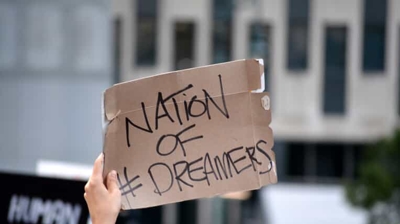 NATION
OF
#DREAMERS
HUMAN
HUMAN